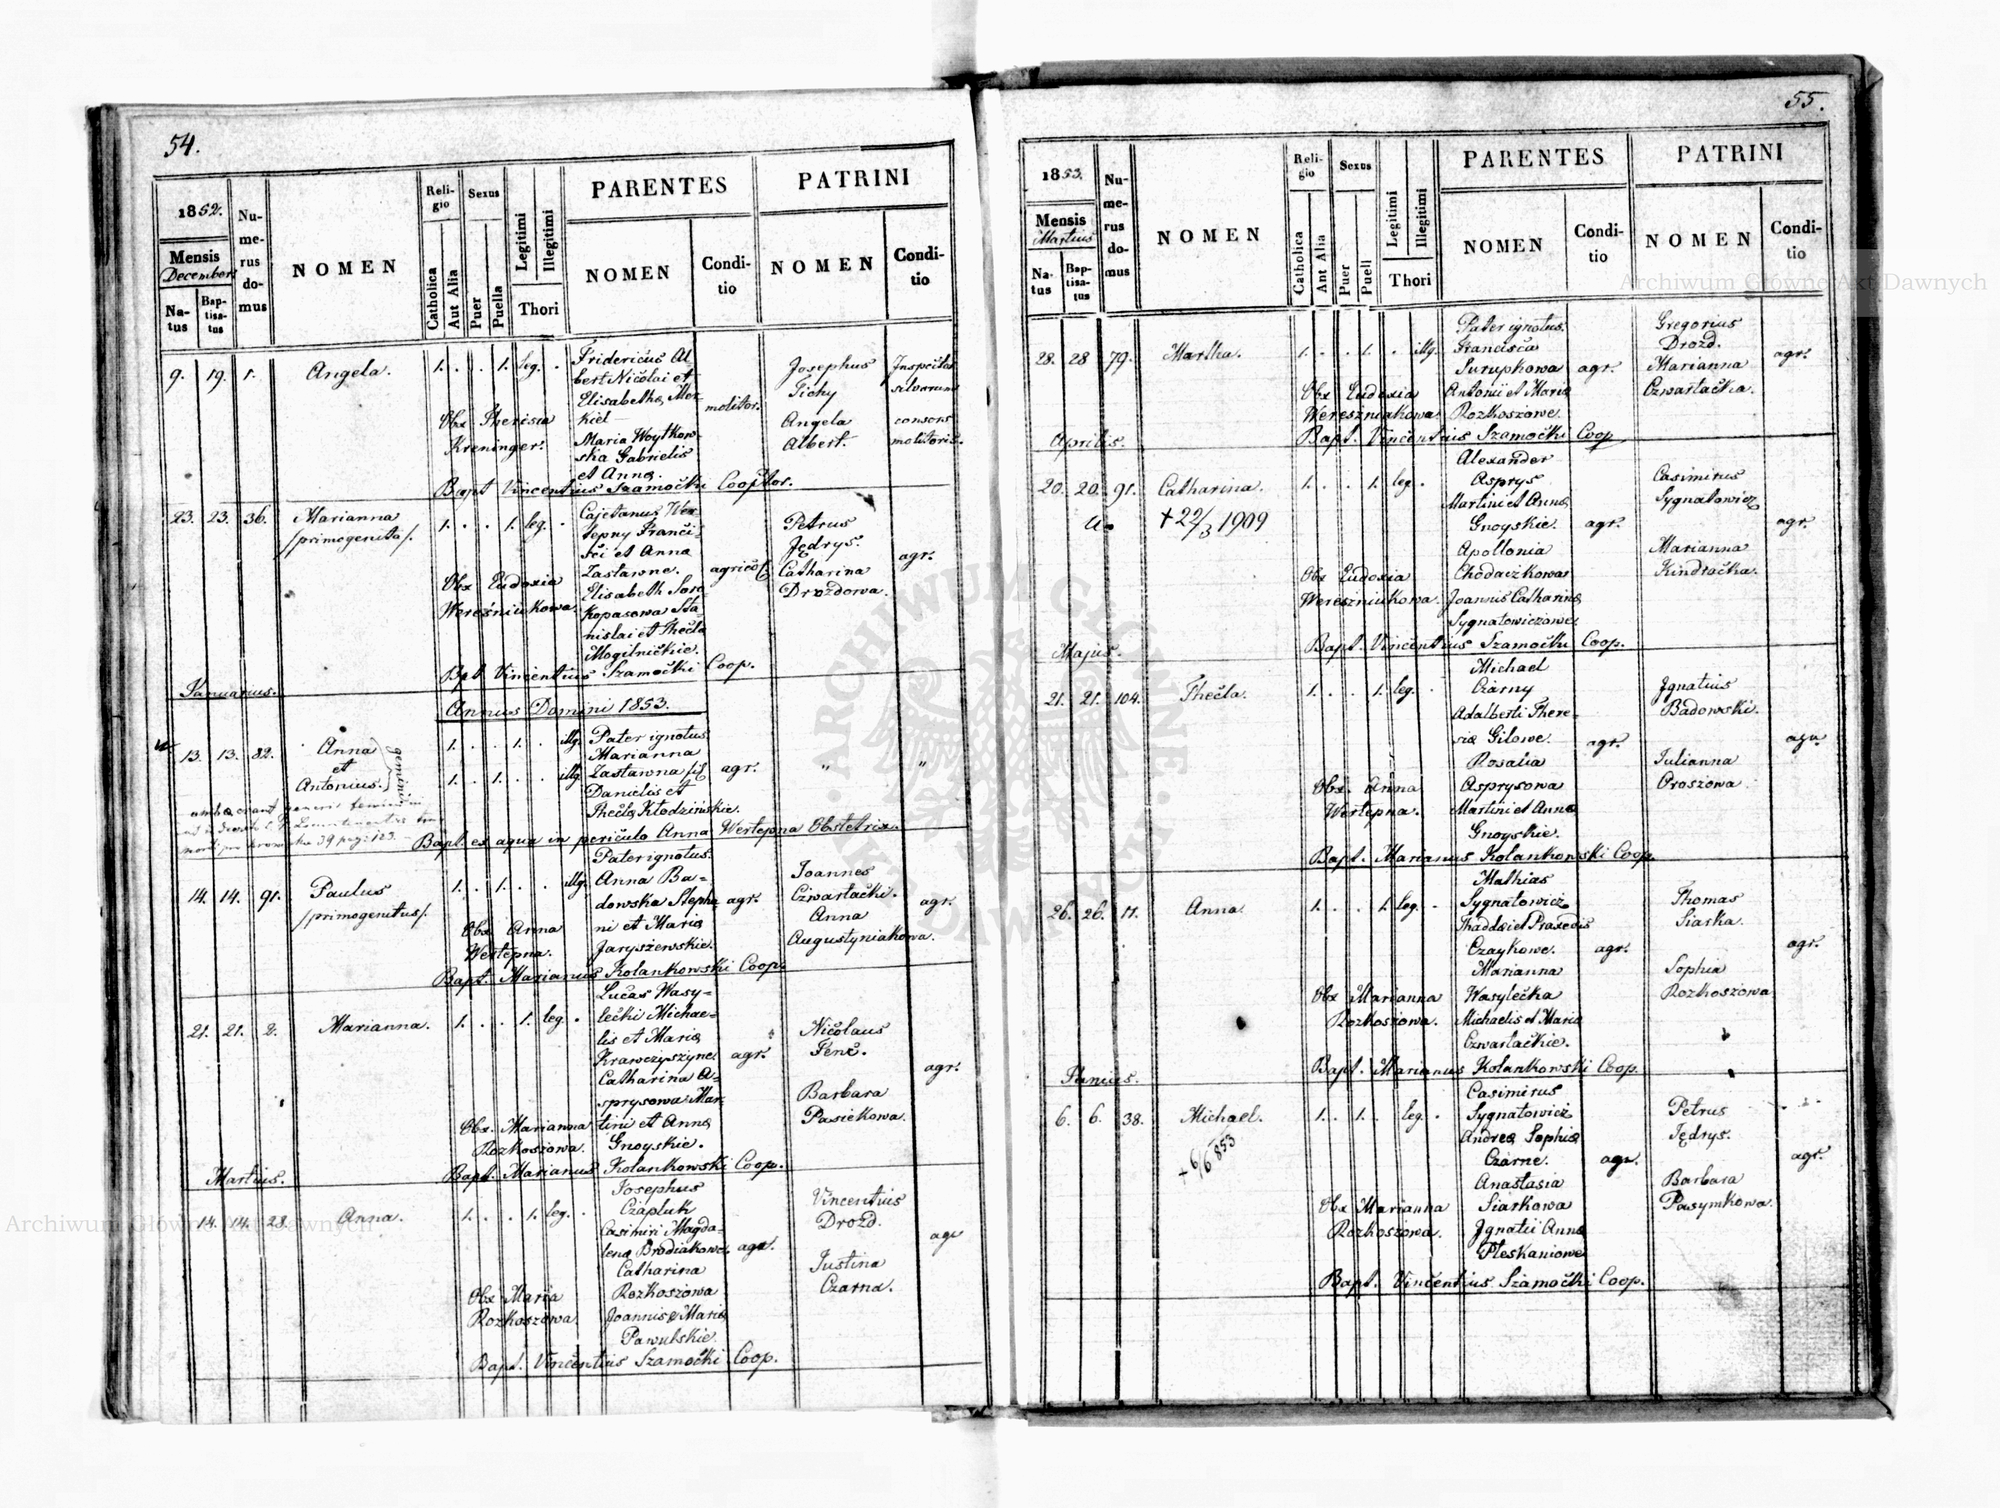 54.
1852.
Mensis
Decembris
Na-
tus
Bap-
tisa-
tus
Nu-
me-
rus
do-
mus
NOMEN
Reli-
gio
Catholica
Aut Alia
Sexus
Puer
Puella
Legitimi
Illegitimi
Thori
PARENTES
NOMEN
Condi-
tio
PATRINI
NOMEN
Condi-
tio
9. 19. 1. Angela. 1. . . 1. leg. .
Fridericus Al
bert Nicolai et
Elisabetha Mer-
kiel
Maria Woytkow-
ska Gabrielis
et Anna.
molitor.
Josephus
Tichy
Angela
Albert
Inspector
silvarum
consors
molitoris.
Obx Theresia
Kreninger.
Bapt Vincentius Szamocki Cooptor.
23. 23. 36. Marianna
/primogenita/.
1. . . 1. leg. .
Cajetanus Wer-
tepny Franci-
sci et Anna
Zastawne.
Elisabeth Soro
kopasowa Sta
nislai et Thecla
Mogilnickie.
agricol
Petrus
Jędrys.
Catharina
Drozdowa.
agr.
Obx Eudoxia
Wereśniukowa.
Bpt Vincentius Szamocki Coop.
Januarius.
Annus Domini 1853.
13. 13. 82. Anna
et
Antonius.
gemini
1. . . 1. . illg.
1. . 1. . . illg.
Pater ignotus
Marianna
Zastawna
Danielis et
Thecla Kłodzińskie.
agr.
" "
Bapt. ex aqua in periculo Anna Wertepna Obstetrix.
14. 14. 91. Paulus
/primogenitus/.
1. . 1. . . illg.
Pater ignotus.
Anna Ba-
dowska Stepha
ni et Maria
Jaryszewskie.
agr.
Joannes
Czwartacki.
Anna
Augustyniakowa.
agr.
Obx Anna
Wertepna.
Bapt. Marianus Kolankowski Coop.
21. 21. 2. Marianna. 1. . . 1. leg. .
Lucas Wasy-
lecki Michae-
lis et Maria
Krawczyszyne
Catharina A-
sprysowa Mar-
tini et Anna
Gnoyskie.
agr.
Nicolaus
Fenc.
Barbara
Pasiekowa.
agr.
Obx. Marianna
Rozkoszowa.
Bapt. Marianus Kolankowski Coop.
Martius.
14. 14. 28. Anna. 1. . . 1. leg. .
Josephus
Czapluk
Casimiri Magda-
lena Brodiakowe
Catharina
Rozkoszowa
Joannis & Maria
Pawulskie.
agr.
Vincentius
Drozd.
Justina
Czarna.
agr
Obx Maria
Rozkoszowa.
Bapt. Vincentius Szamocki Coop.
55.
1853.
Mensis
Martius
Na-
tus
Bap-
tisa-
tus
Nu-
me-
rus
do-
mus
NOMEN
Reli-
gio
Catholica
Aut Alia
Sexus
Puer
Puell
Legitimi
Illegitimi
Thori
PARENTES
NOMEN
Condi-
tio
PATRINI
NOMEN
Condi-
tio
28. 28 79. Martha. 1. . . 1. . illg.
Pater ignotus.
Francisca
Surupkowa
Antonii et Maria
Rozkoszowe.
agr.
Gregorius
Drozd.
Marianna
Czwartacka.
agr.
Obx Eudoxia
Wereszniakowa
Bapt. Vincentius Szamocki Coop
Aprilis.
20. 20. 91. Catharina. 1. . . 1. leg. .
+ 22/3 1909
Alexander
Asprys
Martini et Anna
Gnoyskie.
Apollonia
Chodaczkowa
Joannis Catharina
Sygnatowiczowe
agr.
Casimirus
Sygnatowicz
Marianna
Kindracka.
agr.
Obx Eudoxia
Wereszniukowa.
Bapt. Vincentius Szamocki Coop.
Majus.
21. 21. 104. Thecla. 1. . . 1. leg. .
Michael
Czarny
Adalberti There-
sia Gilowe.
Rosalia
Asprysowa
Martini et Anna
Gnoyskie.
agr.
Ignatius
Badowski.
Julianna
Oroszowa.
agr.
Obx. Anna
Wertepna.
Bapt. Marianus Kolankowski Coop.
26. 26. 11. Anna. 1. . . 1. leg. .
Mathias
Sygnatowicz
Thaddæi et Praxedis
Czaykowe.
Marianna
Wasylecka
Michaelis et Maria
Czwartackie.
agr.
Thomas
Siarka.
Sophia
Rozkoszowa
agr.
Obx Marianna
Rozkoszowa.
Bapt. Marianus Kolankowski Coop.
Junius.
6. 6. 38. Michael. 1. . 1. . leg. .
+ 6/6 853
Casimirus
Sygnatowicz
Andrea Sophia
Czarne.
Anastasia
Siarkowa
Ignatii Anna
Pleskaniowe
agr.
Petrus
Jędrys.
Barbara
Pasymkowa.
agr.
Obx Marianna
Rozkoszowa.
Bapt. Vincentius Szamocki Coop.
Archiwum Główne Akt Dawnych
Archiwum Główne Akt Dawnych
ARCHIWUM GŁÓWNE AKT DAWNYCH